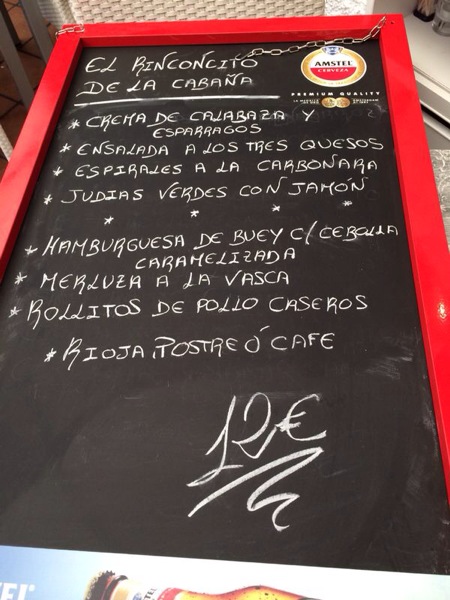 EL RINCONCITO
DE LA CABAÑA
AMSTEL
CERVEZA
PREMIUM QUALITY
* CREMA DE CALABAZA Y
ESPARRAGOS
* ENSALADA A LOS TRES QUESOS
* ESPIRALES A LA CARBONARA
* JUDIAS VERDES CON JAMÓN
* * * *
* HAMBURGUESA DE BUEY C/CEBOLLA
CARAMELIZADA
* MERLUZA A LA VASCA
* ROLLITOS DE POLLO CASEROS
* RIOJA, POSTRE Ó CAFE
12€